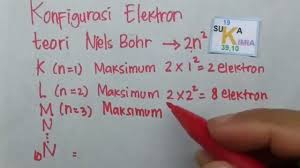 Konfigurasi Elektron
teori Niels Bohr → 2n²
19
SUKA
KIMIA
39,10
K (n=1) Maksimum 2 x 1² = 2 elektron
L (n=2) Maksimum 2 x 2² = 8 elektron
M (n=3) Maksimum
N
N =